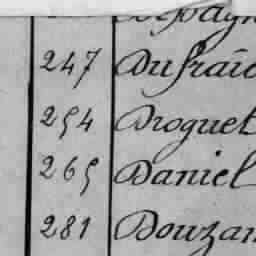 247 Dufraî
254 Droguet
265 Daniel
281 Douzan